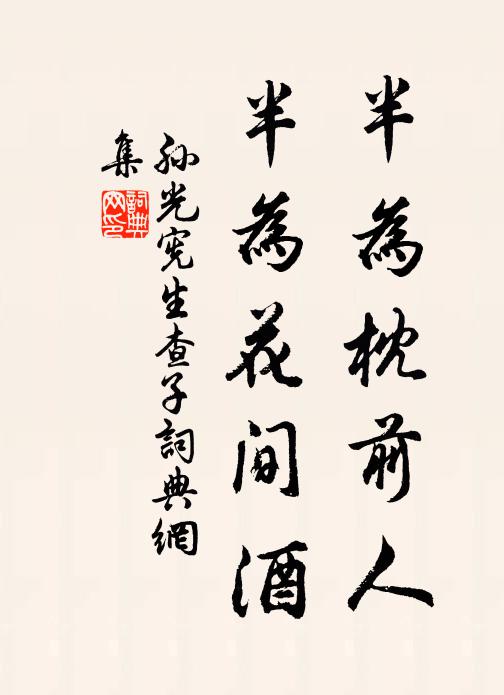 半為枕前人
半為花間酒
孫光憲生查子詞典網
集
詞典網印